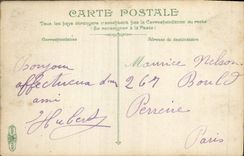 CARTE POSTALE
Tous les pays étrangers n'acceptent pas la Correspondance au recto
(Se renseigner à la Poste)
Correspondance
Adresse du destinataire
Bonjour
affectueux d'un
ami
Hubert
Maurice Nelson
267 Bould
Pereire
Paris